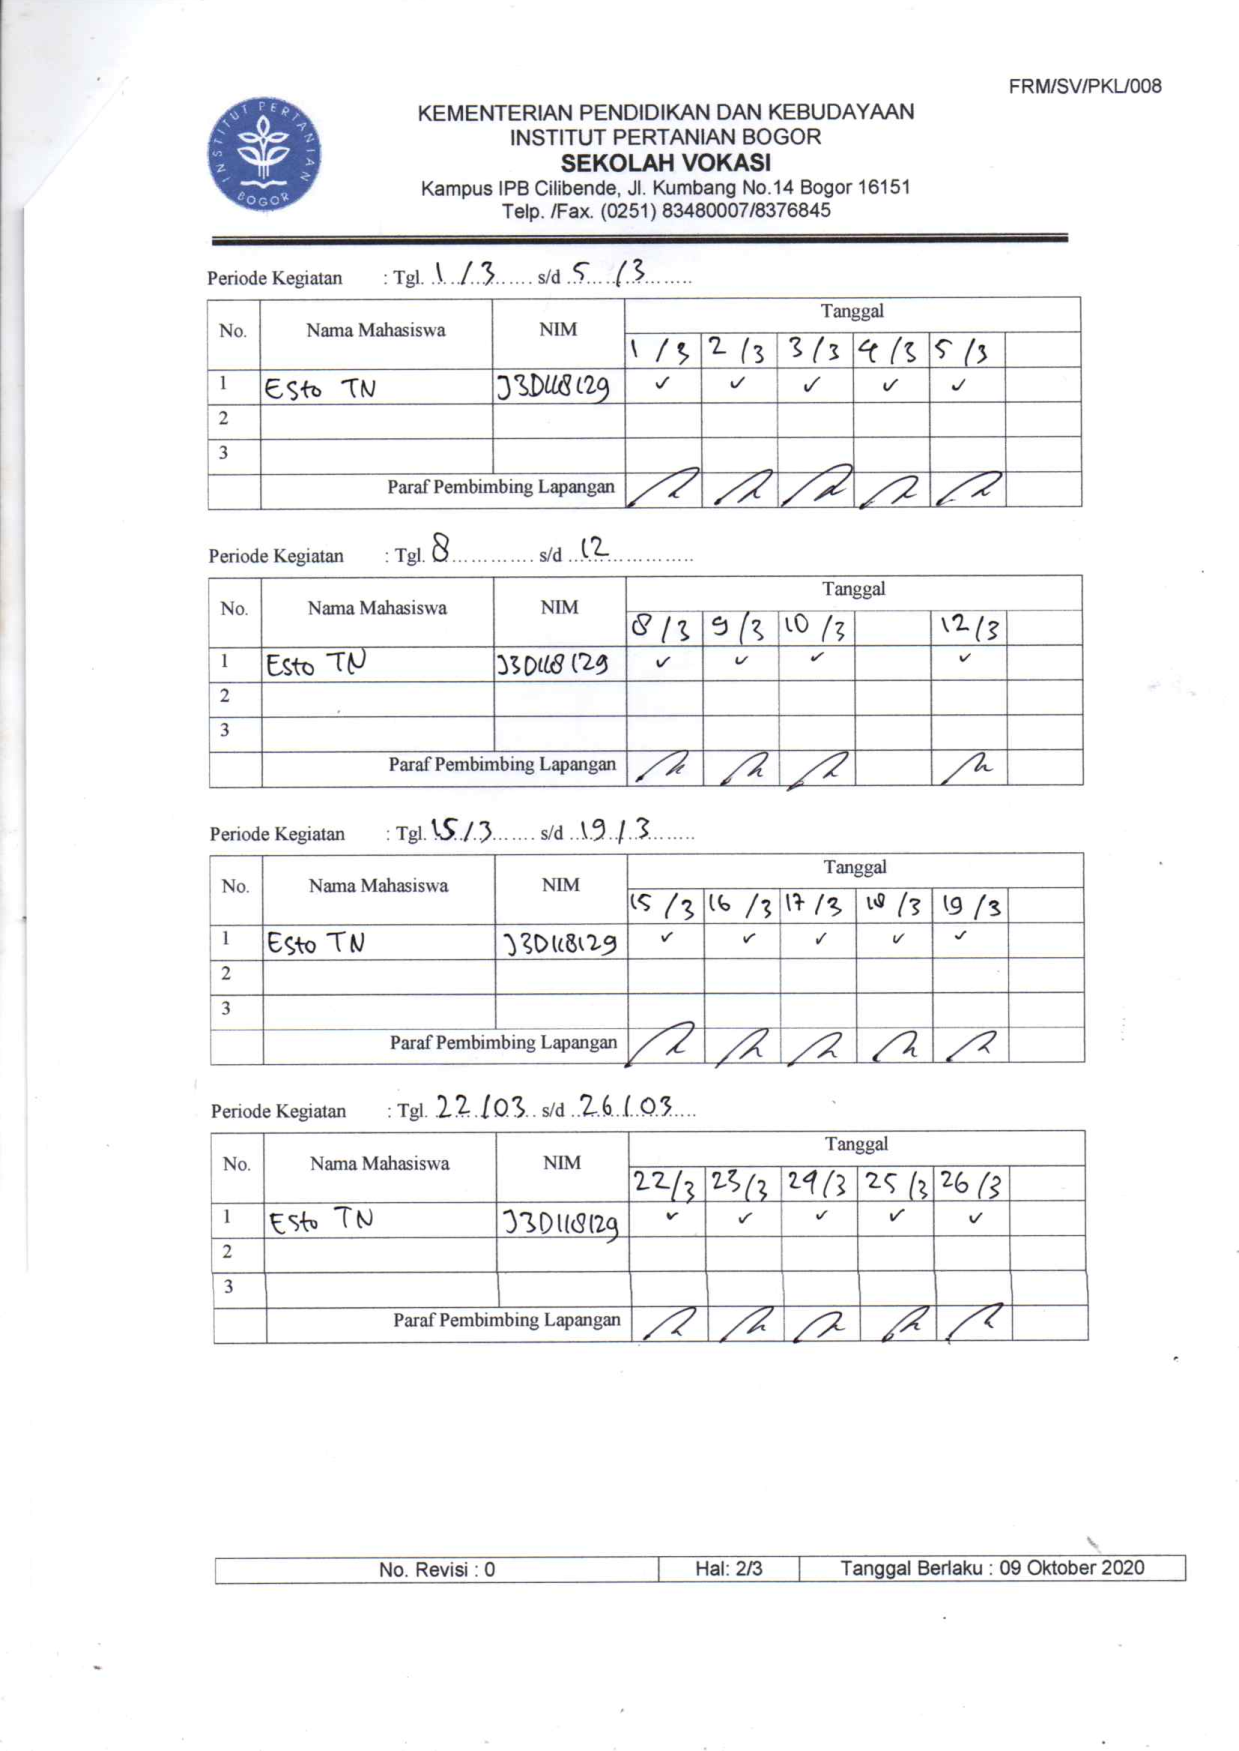 FRM/SV/PKL/008
INSTITUT PERTANIAN BOGOR
KEMENTERIAN PENDIDIKAN DAN KEBUDAYAAN
INSTITUT PERTANIAN BOGOR
SEKOLAH VOKASI
Kampus IPB Cilibende, Jl. Kumbang No.14 Bogor 16151
Telp. /Fax. (0251) 83480007/8376845
Periode Kegiatan : Tgl. 1/3 s/d 5/3
No. Nama Mahasiswa NIM Tanggal
1/3 2/3 3/3 4/3 5/3
1 Esto TN J3D118129 ✓ ✓ ✓ ✓ ✓
2
3
Paraf Pembimbing Lapangan
Periode Kegiatan : Tgl. 8 s/d 12
No. Nama Mahasiswa NIM Tanggal
8/3 9/3 10/3 12/3
1 Esto TN J3D118129 ✓ ✓ ✓ ✓
2
3
Paraf Pembimbing Lapangan
Periode Kegiatan : Tgl. 15/3 s/d 19/3
No. Nama Mahasiswa NIM Tanggal
15/3 16/3 17/3 18/3 19/3
1 Esto TN J3D118129 ✓ ✓ ✓ ✓ ✓
2
3
Paraf Pembimbing Lapangan
Periode Kegiatan : Tgl. 22/03 s/d 26/03
No. Nama Mahasiswa NIM Tanggal
22/3 23/3 24/3 25/3 26/3
1 Esto TN J3D118129 ✓ ✓ ✓ ✓ ✓
2
3
Paraf Pembimbing Lapangan
No. Revisi : 0 Hal: 2/3 Tanggal Berlaku : 09 Oktober 2020